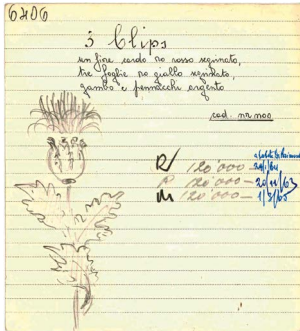 6406
3 Clips
un fiore cardo no rosso segrinato,
tre foglie no giallo segrinato,
gambo e pennacchi argento
cod. nr noo
R/ 120'000 -
P 120'000 - 20/11/63
M 120'000 - 1/3/65